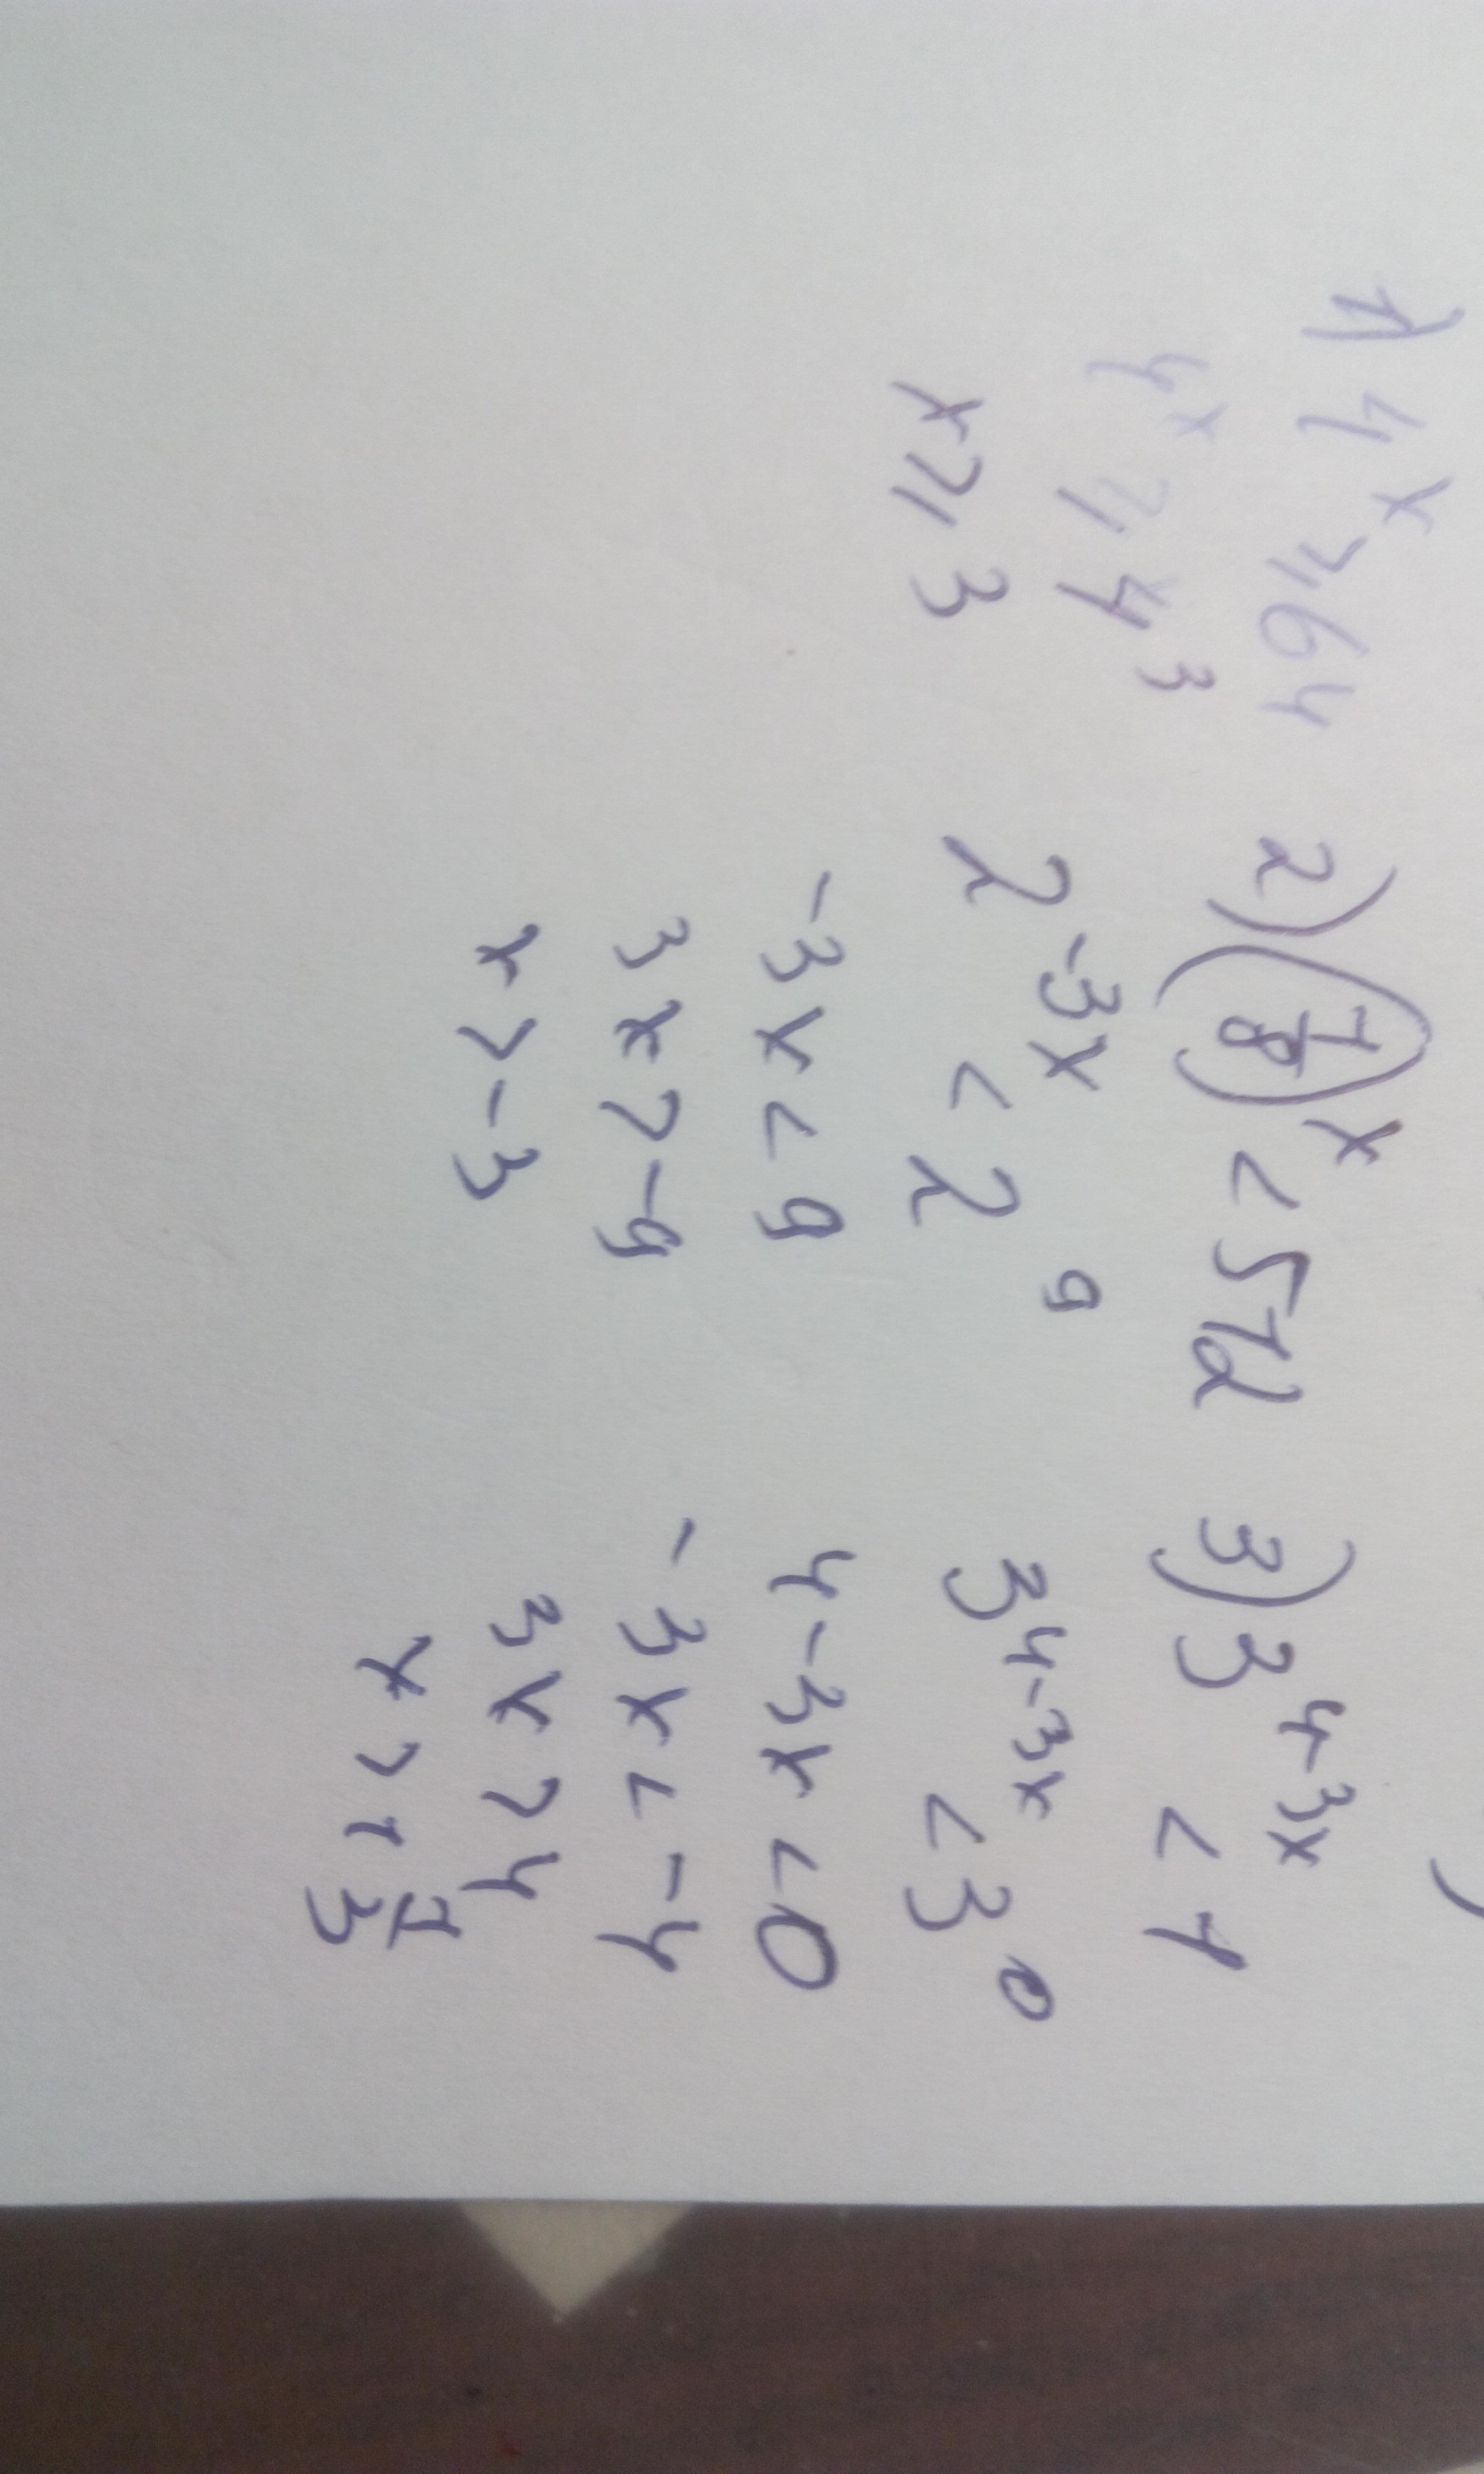 1) 4^x ⩾ 64
4^x ⩾ 4^3
x ⩾ 3
2) (1/8)^x < 512
2^{-3x} < 2^9
-3x < 9
3x > -9
x > -3
3) 3^{4-3x} < 1
3^{4-3x} < 3^0
4-3x < 0
-3x < -4
3x > 4
x > 1 1/3